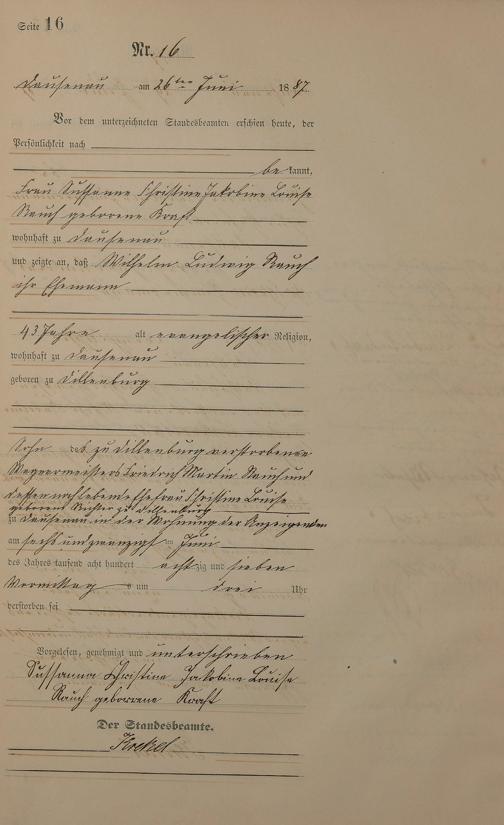 Seite 16
Nr. 16
Dausenau am 26ten Juni 1887
Vor dem unterzeichneten Standesbeamten erschien heute, der
Persönlichkeit nach
be kannt,
Frau Sussanne Christine Jakobine Louise
Rauch geborene Kraft
wohnhaft zu Dausenau
und zeigte an, daß Wilhelm Ludwig Rauch
ihr Ehemann
43 Jahre alt evangelischer Religion,
wohnhaft zu Dausenau
geboren zu Dillenburg
Sohn des zu Dillenburg verstorbenen
Friedrich Martin Rauch und
dessen Ehefrau Christine Louise
geborene zu Dillenburg
zu Dausenau in der Wohnung der Anzeigenden
am sechs und zwanzigst en Juni
des Jahres tausend acht hundert acht zig und sieben
Vormittag s um drei Uhr
verstorben sei
Vorgelesen, genehmigt und unterschrieben
Sussanna Christine Jakobine Louise
Rauch geborrene Kraft
Der Standesbeamte.
Krekel